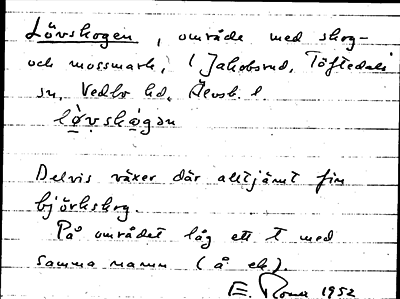 Lövskogen, område med skog-
och mossmark, (Jakobsrud, Töftedals
sn, Vedbo hd, Älvsb. l.
lò̤vskò̤gən
Delvis växer där alltjämt fin
björkskog.
På området låg ett t med
samma namn (å ek).
E. Roman 1952